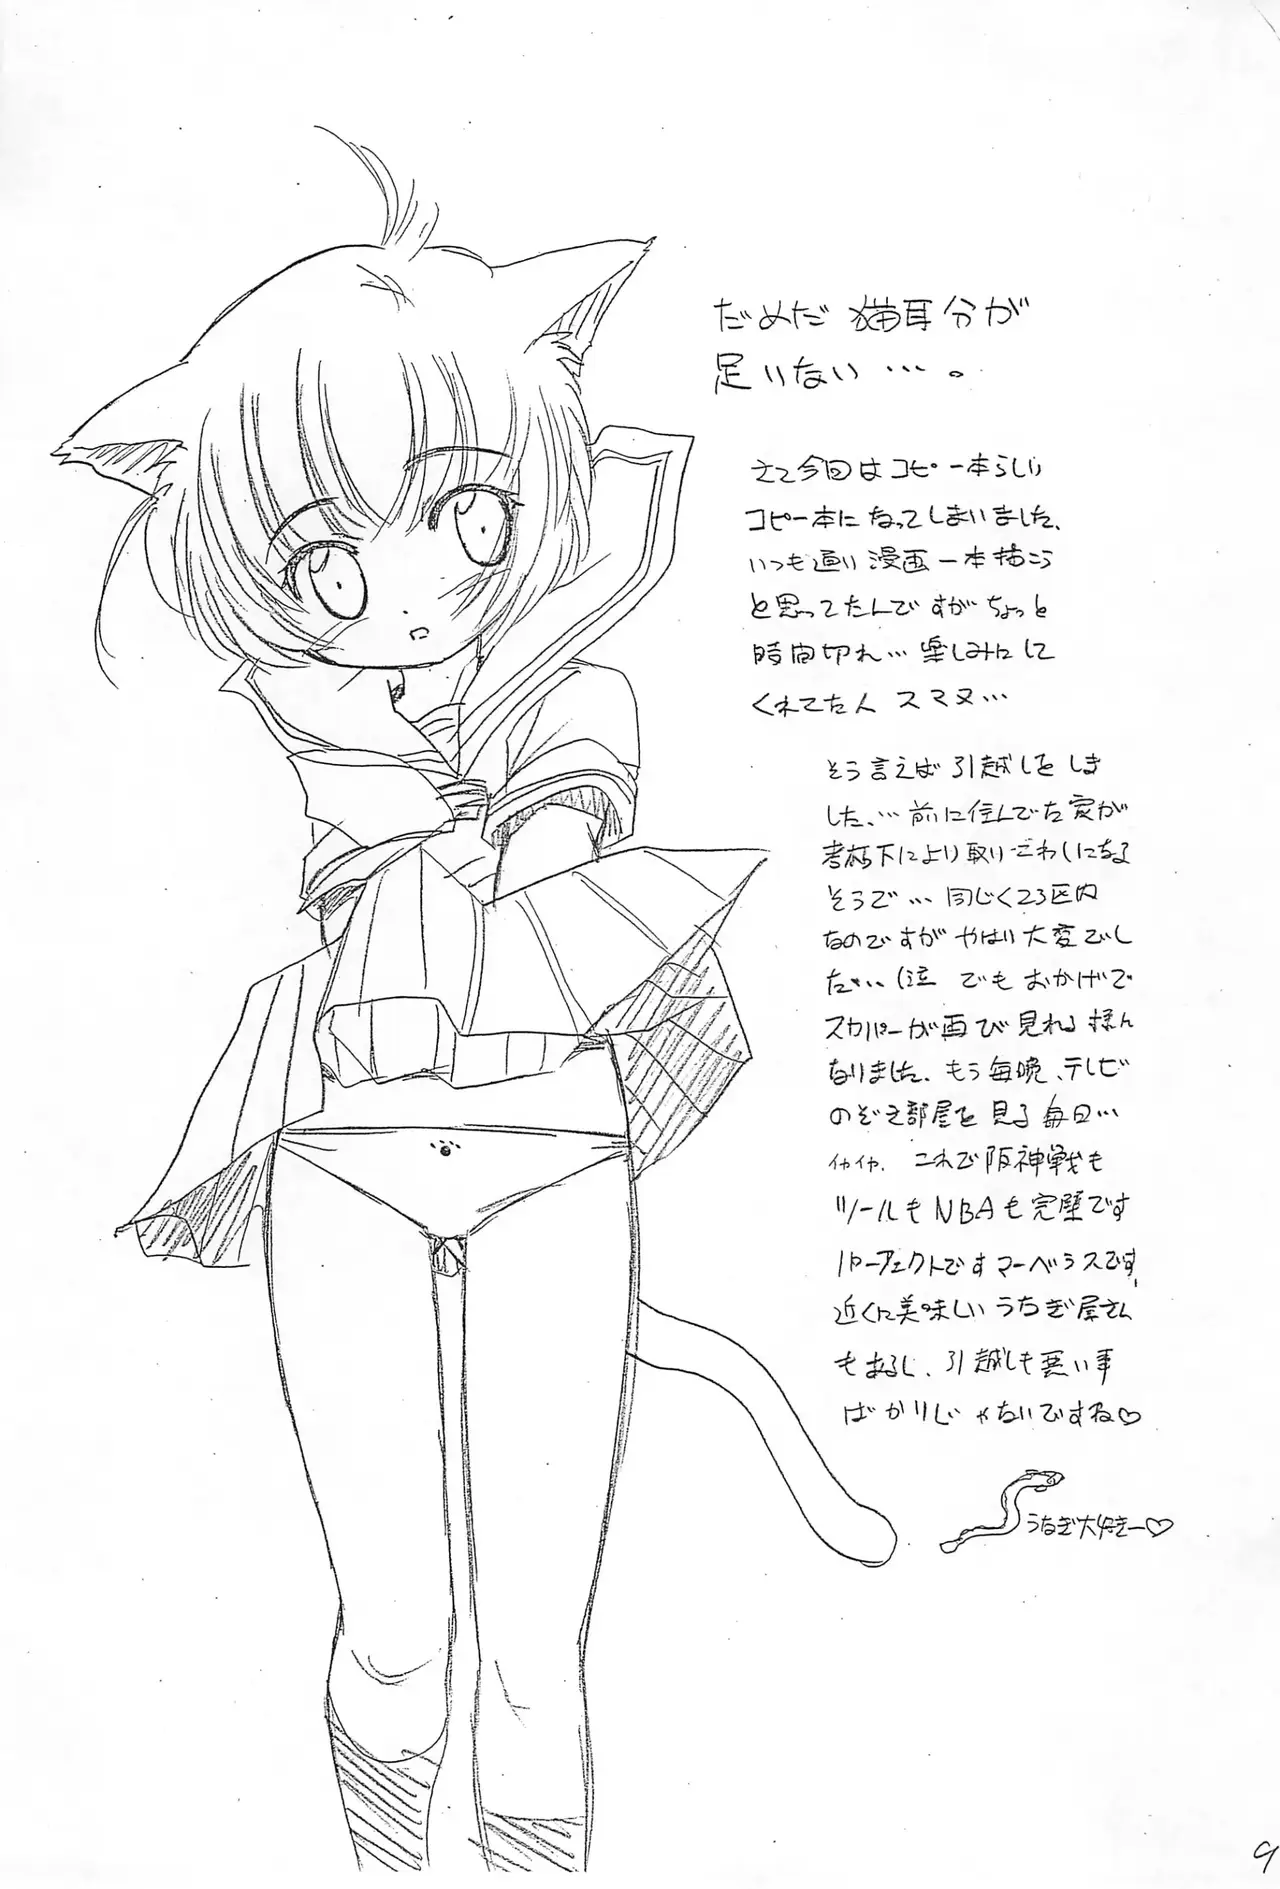 だめだ 猫耳分が
足りない…。
さて今回はコピー本らしい
コピー本になってしまいました、
いつも通り漫画一本描こう
と思ってたんですがちょっと
時間切れ… 楽しみにして
くれてた人 スマヌ…
そう言えば引越しをしま
した、… 前に住んでた家が
老朽下により取りこわしになる
そうで… 同じく23区内
なのですがやはり大変でし
た…(泣 でもおかげで
スカパーが再び見れる様ん
なりました、もう毎晩、テレビ
のぞき部屋を見る毎日…
イヤイヤ. これで阪神戦も
ツールもNBAも完璧です
パーフェクトですマーベラスです
近くに美味しいうなぎ屋さん
もあるし、引越しも悪い事
ばかりじゃないですね♡
うなぎ大好きー♡
9